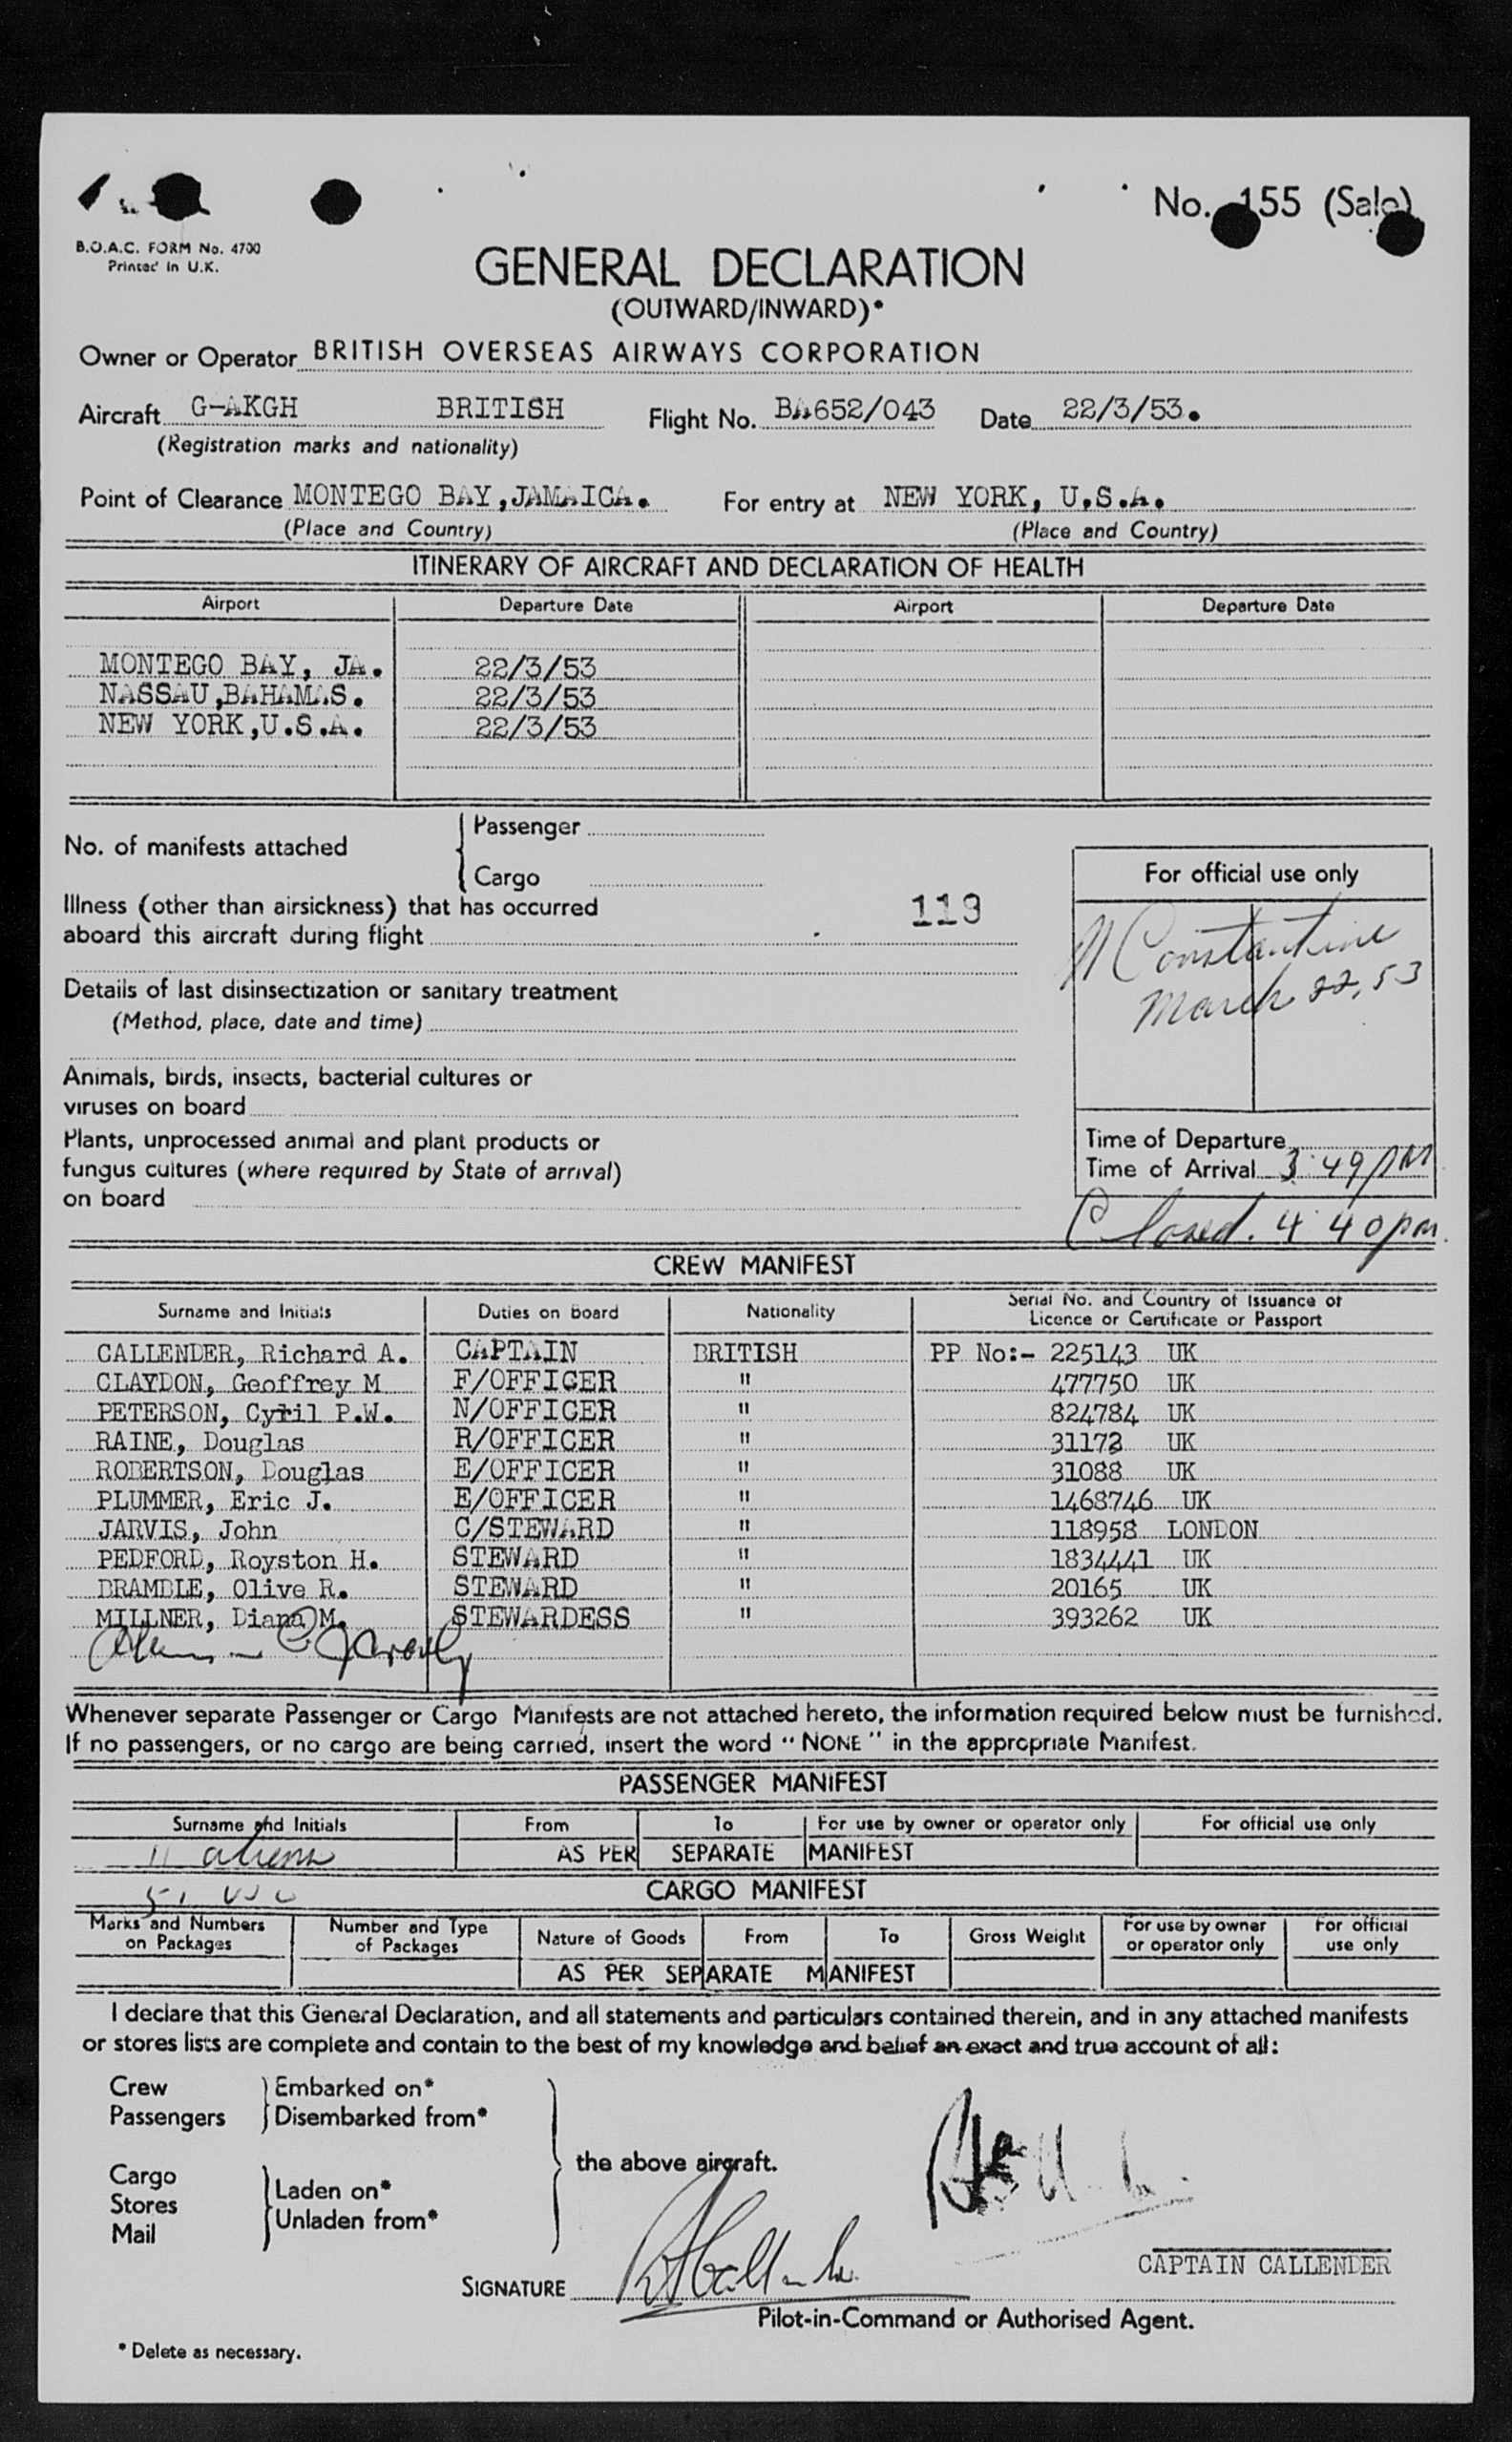 No. 155 (Sale)
B.O.A.C. FORM No. 4700
Printed in U.K.
GENERAL DECLARATION
(OUTWARD/INWARD)*
Owner or Operator BRITISH OVERSEAS AIRWAYS CORPORATION
Aircraft G-AKGH BRITISH Flight No. BA652/043 Date 22/3/53.
(Registration marks and nationality)
Point of Clearance MONTEGO BAY,JAMAICA. For entry at NEW YORK, U.S.A.
(Place and Country) (Place and Country)
ITINERARY OF AIRCRAFT AND DECLARATION OF HEALTH
Airport Departure Date Airport Departure Date
MONTEGO BAY, JA. 22/3/53
NASSAU,BAHAMAS. 22/3/53
NEW YORK,U.S.A. 22/3/53
No. of manifests attached { Passenger
Cargo
Illness (other than airsickness) that has occurred
aboard this aircraft during flight
119
Details of last disinsectization or sanitary treatment
(Method, place, date and time)
Animals, birds, insects, bacterial cultures or
viruses on board
Plants, unprocessed animal and plant products or
fungus cultures (where required by State of arrival)
on board
For official use only
Constantine
March 22, 53
Time of Departure
Time of Arrival 3:49 PM
Closed. 4 40 pm.
CREW MANIFEST
Surname and Initials Duties on Board Nationality Serial No. and Country of Issuance of
Licence or Certificate or Passport
CALLENDER, Richard A. CAPTAIN BRITISH PP No:- 225143 UK
CLAYDON, Geoffrey M F/OFFICER " 477750 UK
PETERSON, Cyril P.W. N/OFFICER " 824784 UK
RAINE, Douglas R/OFFICER " 31173 UK
ROBERTSON, Douglas E/OFFICER " 31088 UK
PLUMMER, Eric J. E/OFFICER " 1468746 UK
JARVIS, John C/STEWARD " 118958 LONDON
PEDFORD, Royston H. STEWARD " 1834441 UK
BRAMBLE, Olive R. STEWARD " 20165 UK
MILLNER, Diana M. STEWARDESS " 393262 UK
Whenever separate Passenger or Cargo Manifests are not attached hereto, the information required below must be furnished.
If no passengers, or no cargo are being carried, insert the word "NONE" in the appropriate Manifest.
PASSENGER MANIFEST
Surname and Initials From To For use by owner or operator only For official use only
11 aliens AS PER SEPARATE MANIFEST
51 USC
CARGO MANIFEST
Marks and Numbers on Packages Number and Type of Packages Nature of Goods From To Gross Weight For use by owner or operator only For official use only
AS PER SEPARATE MANIFEST
I declare that this General Declaration, and all statements and particulars contained therein, and in any attached manifests
or stores lists are complete and contain to the best of my knowledge and belief an exact and true account of all:
Crew } Embarked on*
Passengers } Disembarked from*
the above aircraft.
Cargo
Stores } Laden on*
Mail } Unladen from*
CAPTAIN CALLENDER
SIGNATURE RA Callender
Pilot-in-Command or Authorised Agent.
* Delete as necessary.